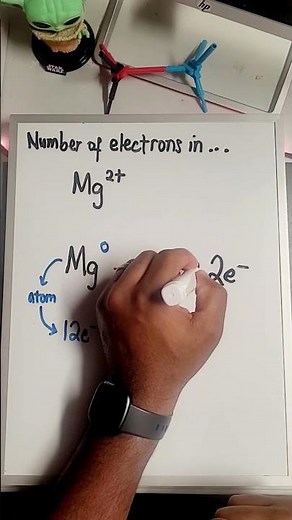 hp
STAR
WARS
Number of electrons in...
Mg²⁺
Mg⁰ 2e⁻
atom
12e⁻